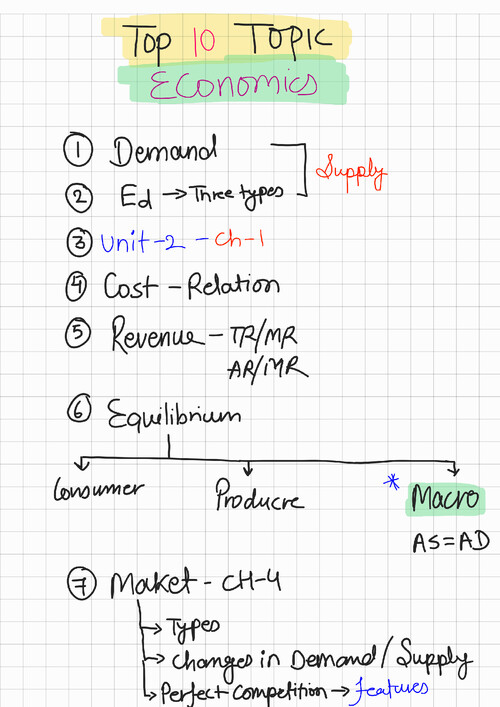 Top 10 Topic
Economics
① Demand
② Ed → Three types
Supply
③ Unit-2 - Ch-1
④ Cost - Relation
⑤ Revenue - TR/MR
AR/MR
⑥ Equilibrium
Consumer Producre * Macro
AS=AD
⑦ Maket - CH-4
→ Types
→ Changes in Demand/Supply
→ Perfect Competition → features